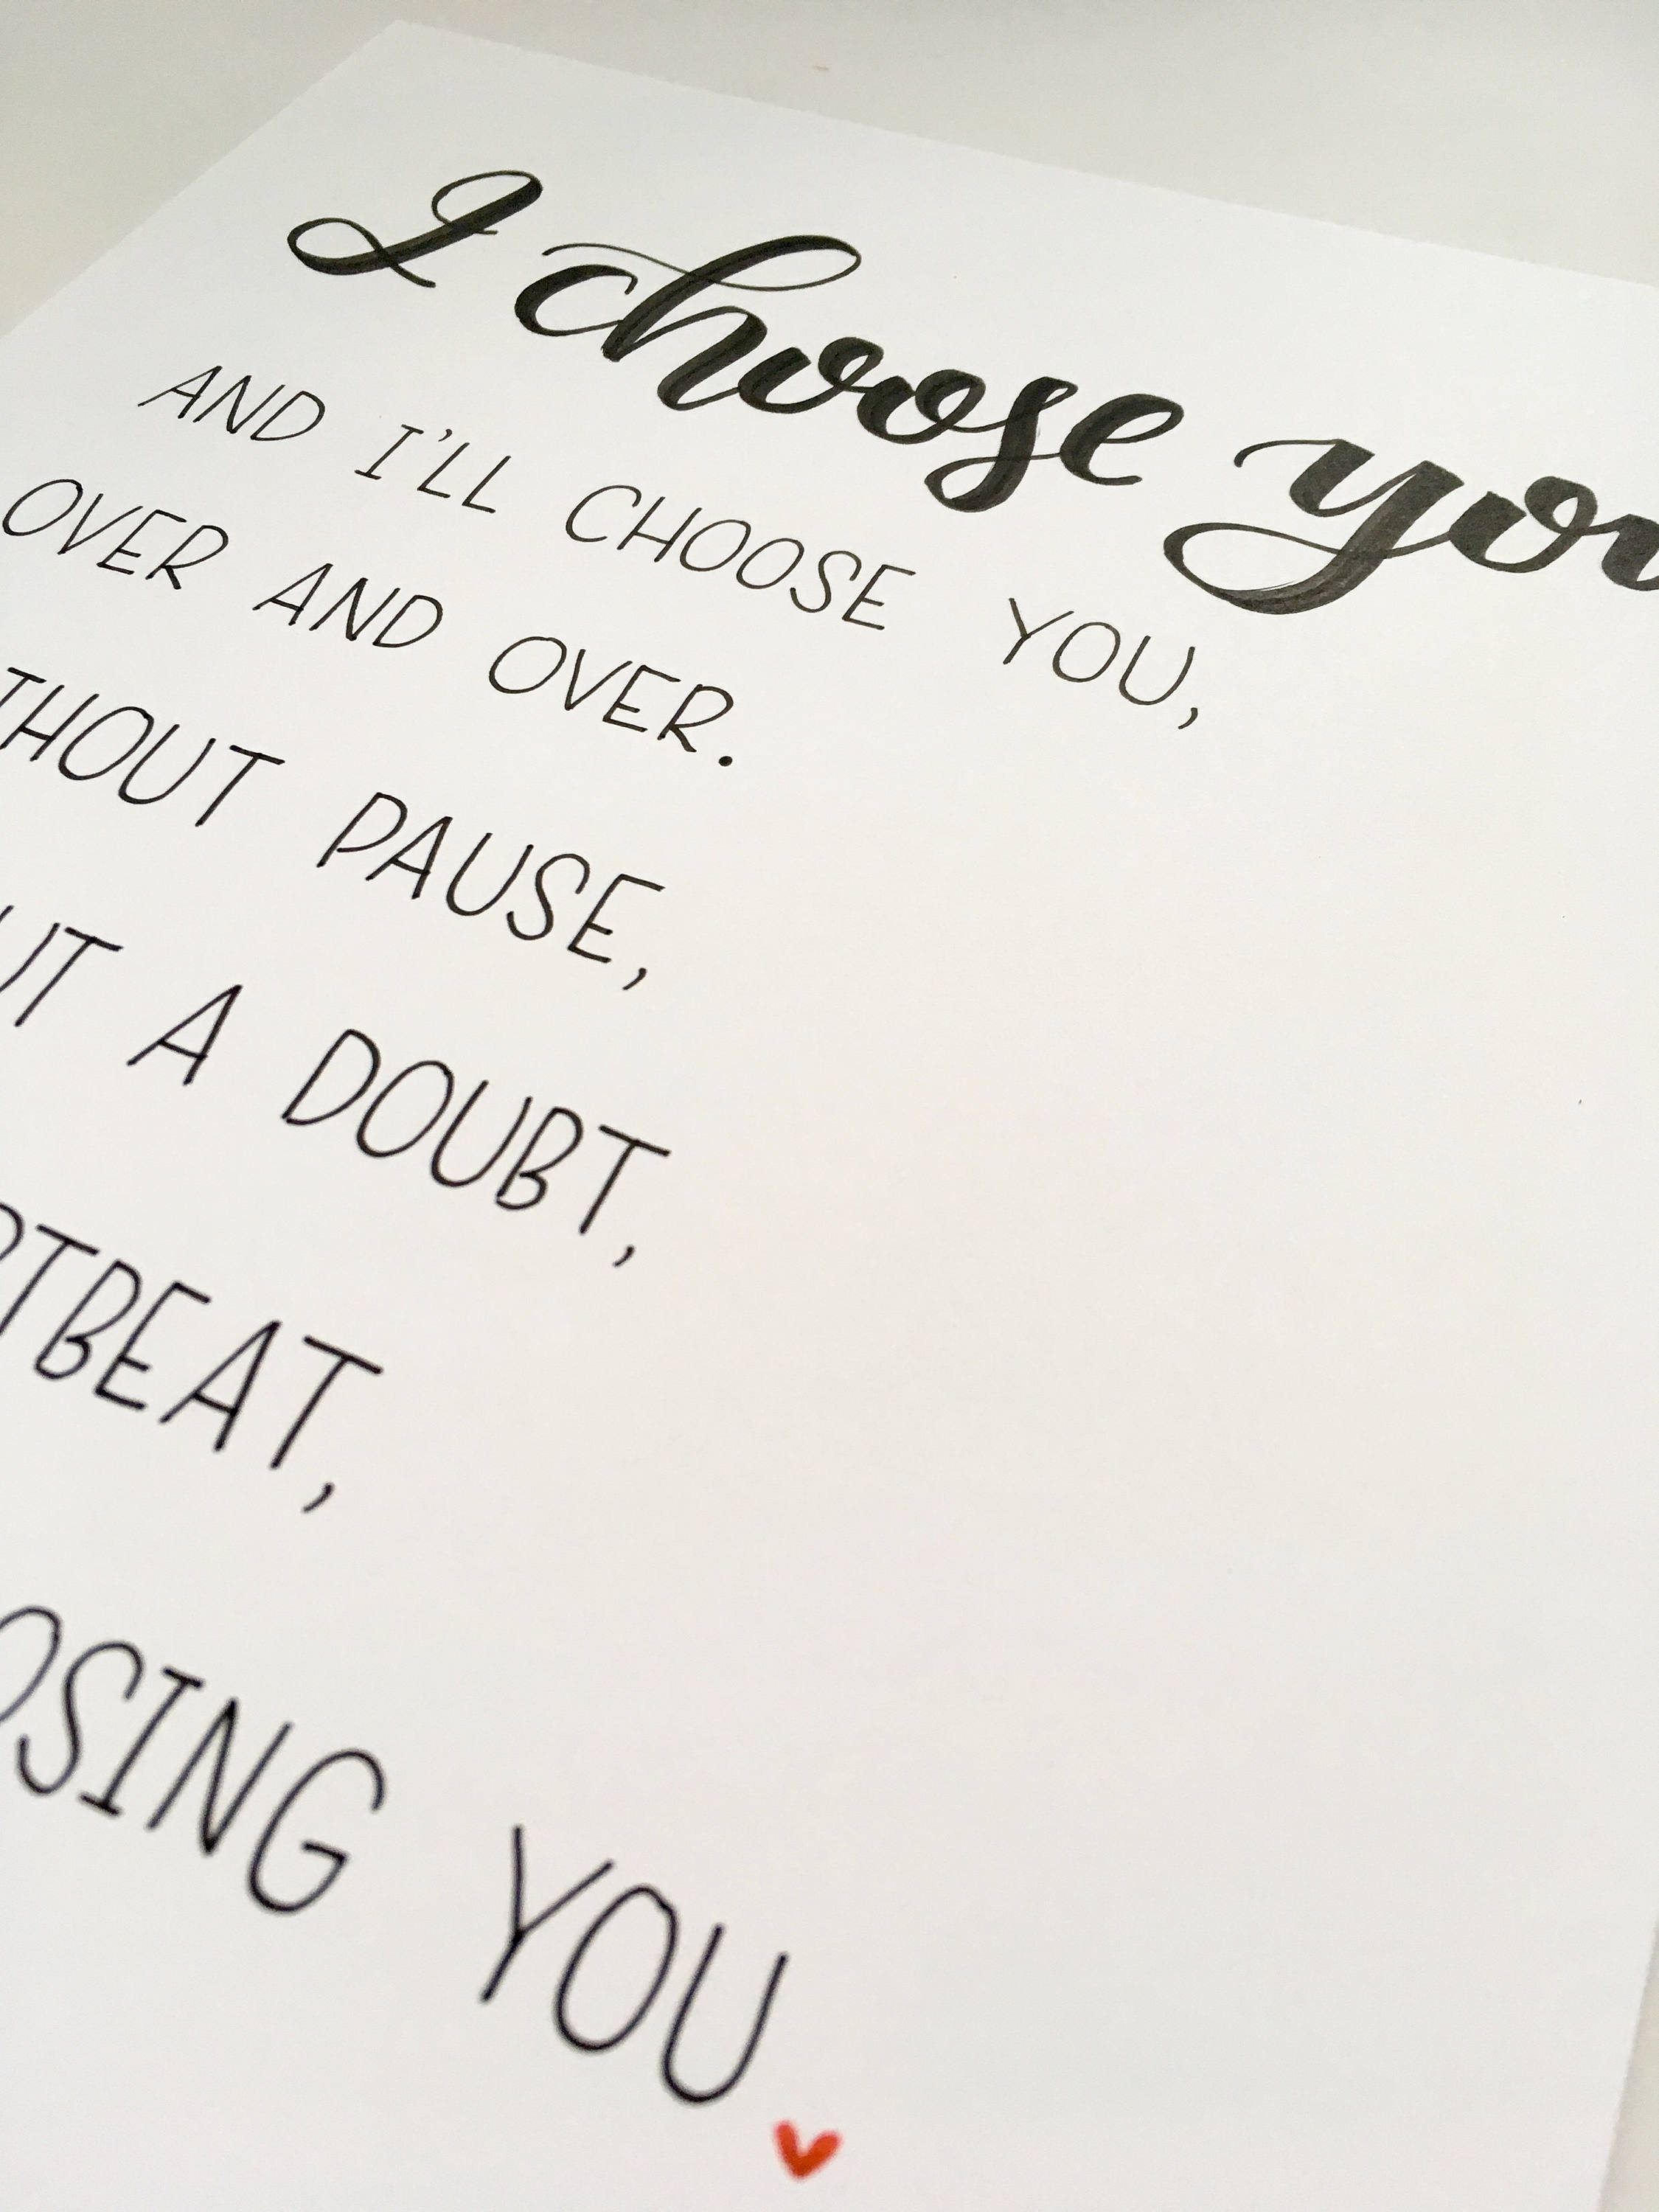 I choose you
AND I'LL CHOOSE YOU,
OVER AND OVER.
THOUT PAUSE,
UT A DOUBT,
TBEAT,
OSING YOU